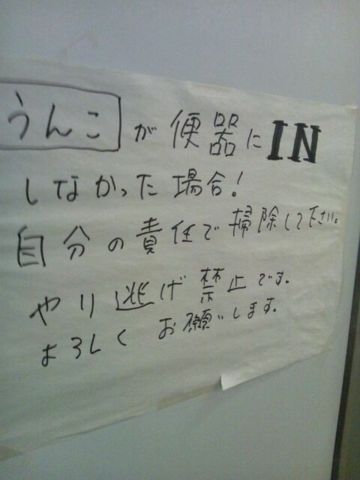 うんこが便器にIN
しなかった場合!
自分の責任で掃除して下さい。
やり逃げ禁止です。
よろしくお願いします。